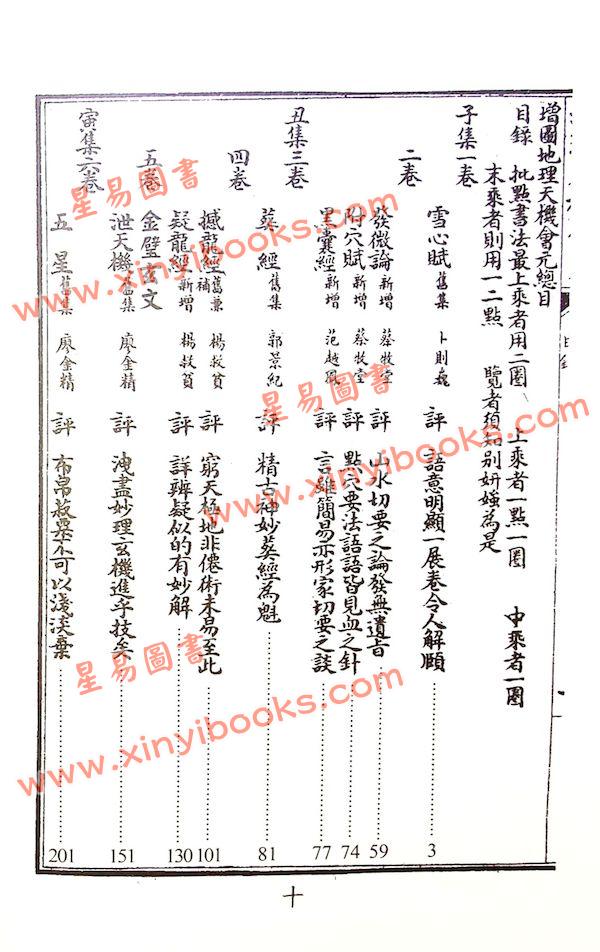 增圖地理天機會元總目
目錄 批點書法最上乘者用二圈 上乘者一點一圈 中乘者一圈
末乘者則用一二點 覽者須知別妍媸為是
子集一卷
雪心賦 舊集 卜則巍 評 語意明顯一展卷令人解頤 3
二卷
發微論 新增 蔡牧堂 評 山水切要之論發無遺旨 59
附穴賦 新增 蔡牧堂 評 點穴要法語語皆見血之針 74
黑囊經 新增 范越鳳 評 言雖簡易亦形家切要之談 77
丑集三卷
葬經 舊集 郭景純 評 精古神妙葬經為魁 81
四卷
撼龍經 舊兼補 楊救貧 評 窮天極地非僊術未易至此 101
疑龍經 新增 楊救貧 評 詳辨疑似的有妙解 130
五卷
金璧玄文
泄天機 舊集 廖金精 評 洩盡妙理玄機進乎技矣 151
寅集六卷
五星 舊集 廖金精 評 布帛菽粟不可以淺淡棄 201
十
星易圖書
www.xinyibooks.com
星易圖書
www.xinyibooks.com
星易圖書
www.xinyibooks.com